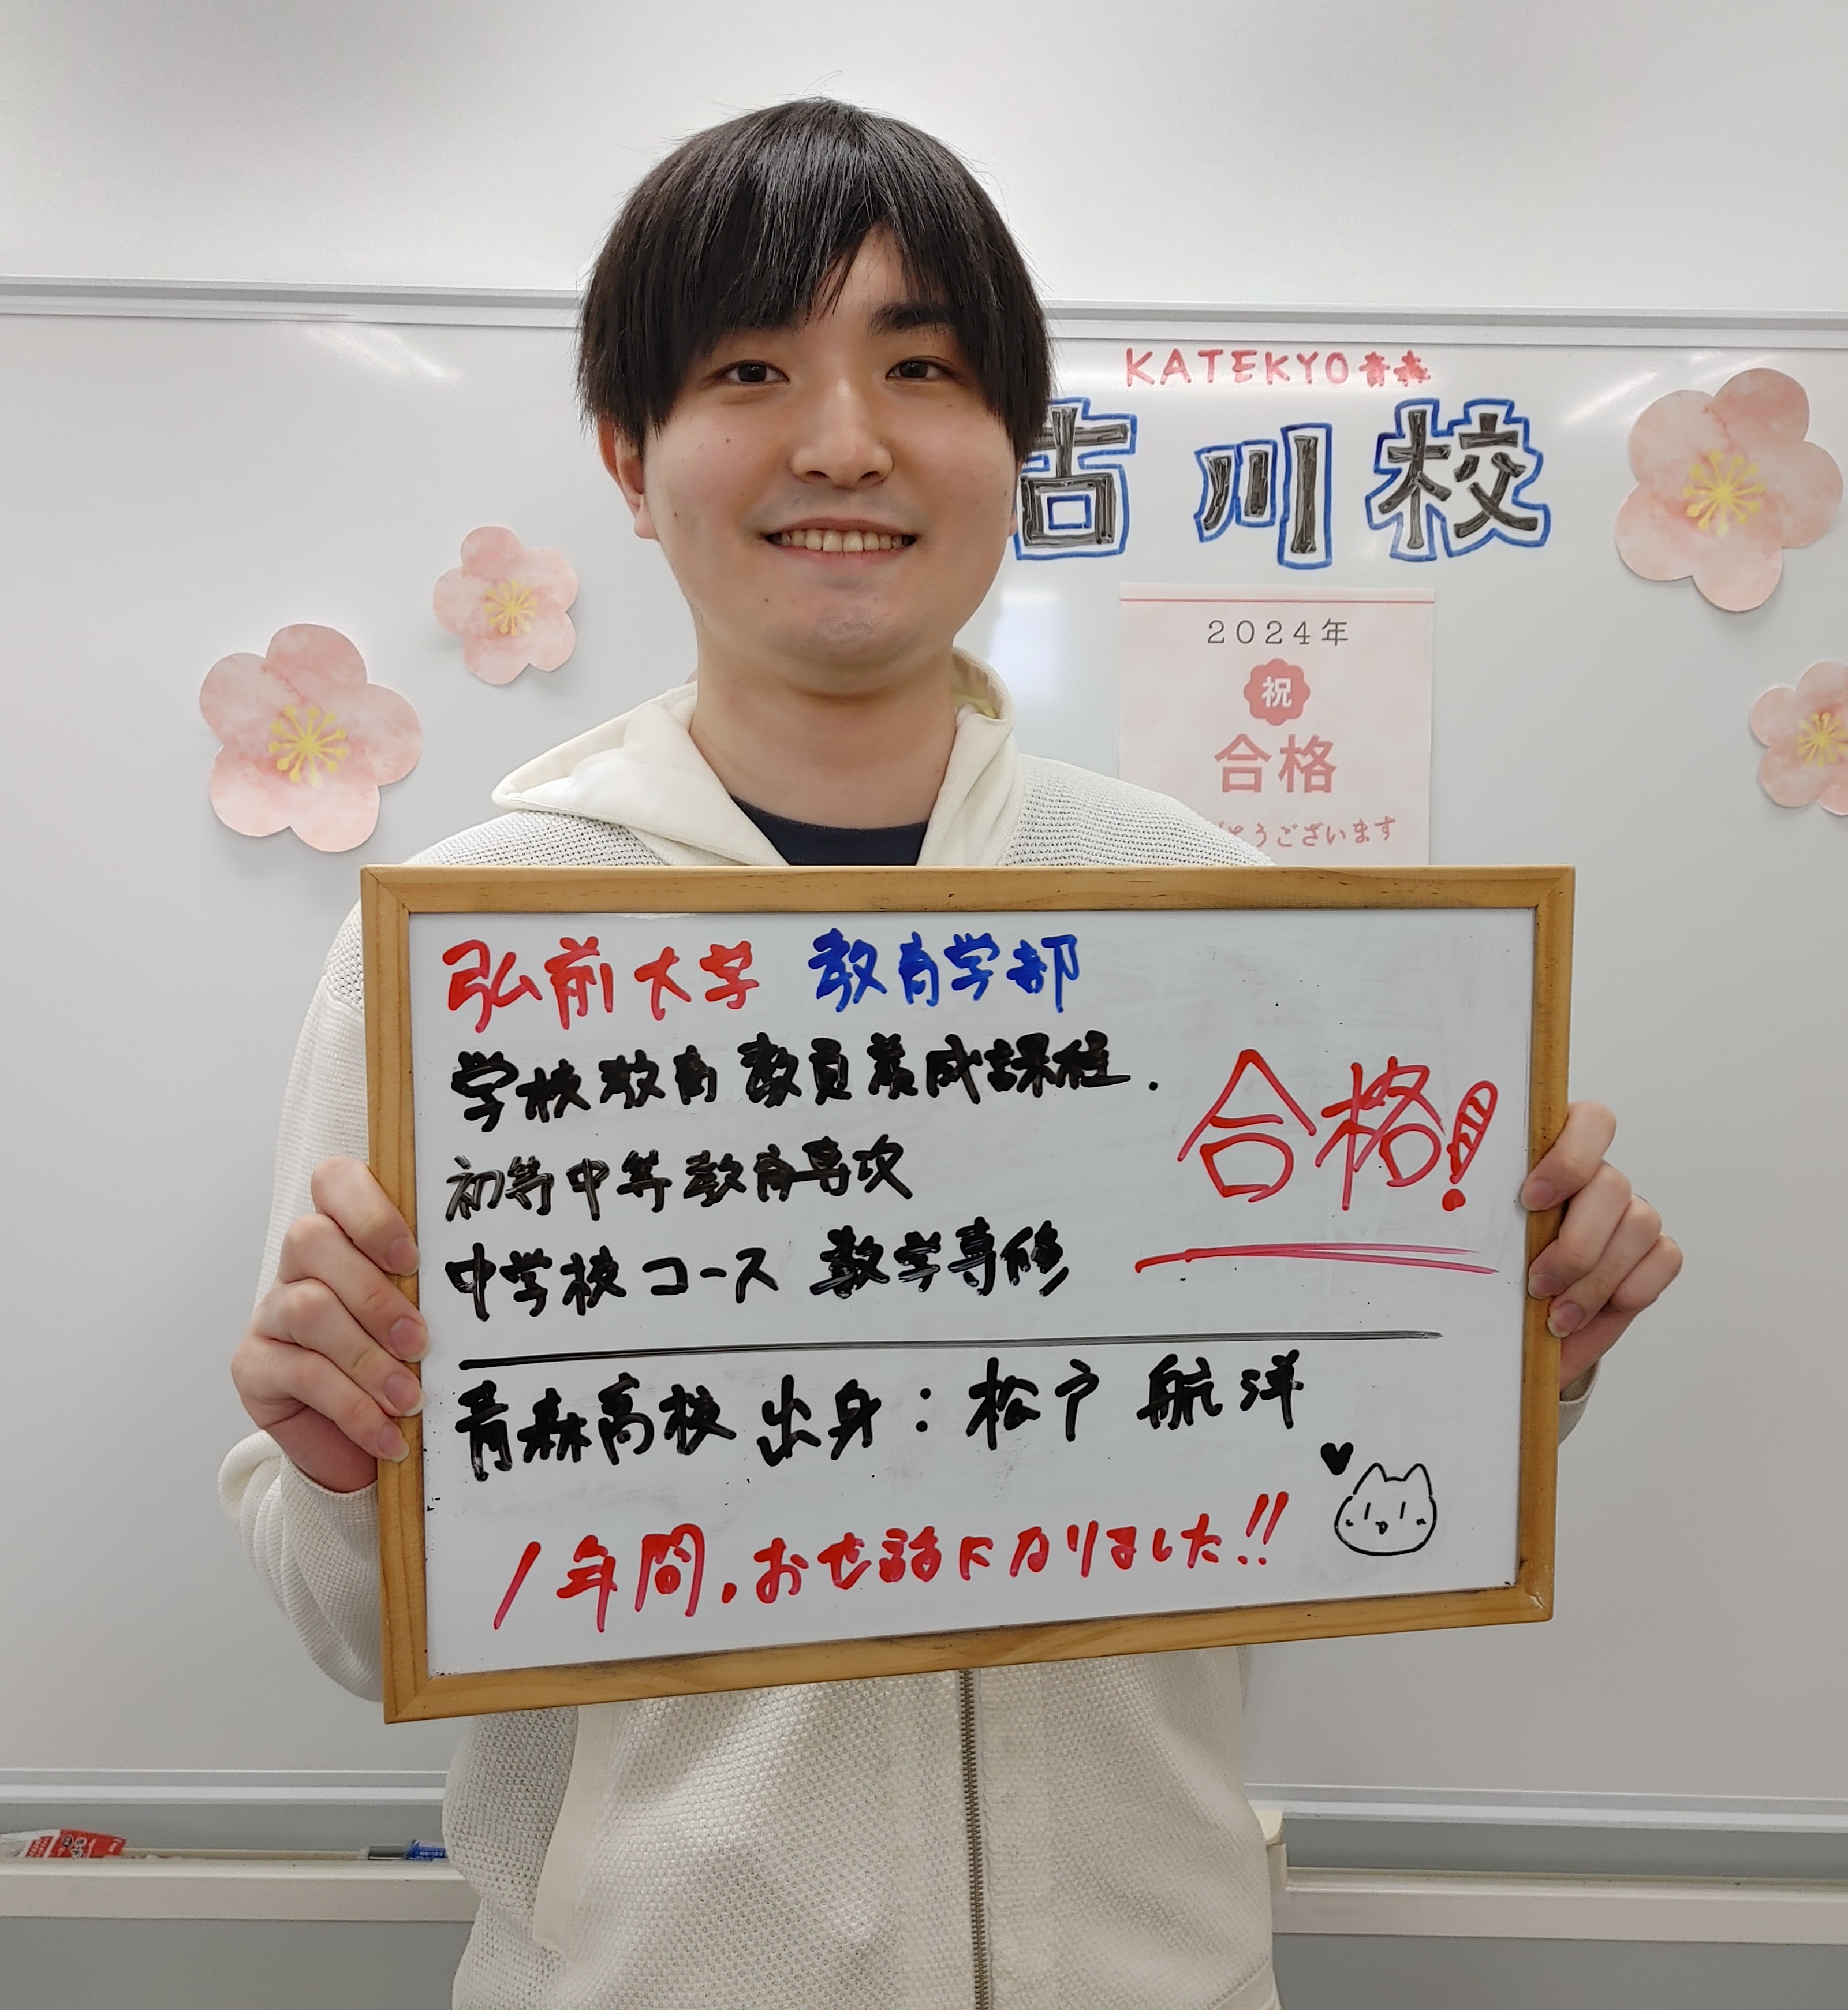 KATEKYO青森
古川校
2024年
祝
合格
とうございます
弘前大学 教育学部
学校教育教員養成課程.
初等中等教育専攻
中学校コース 数学専修
合格!
青森高校 出身:松戸 航洋
1年間,お世話になりました!!